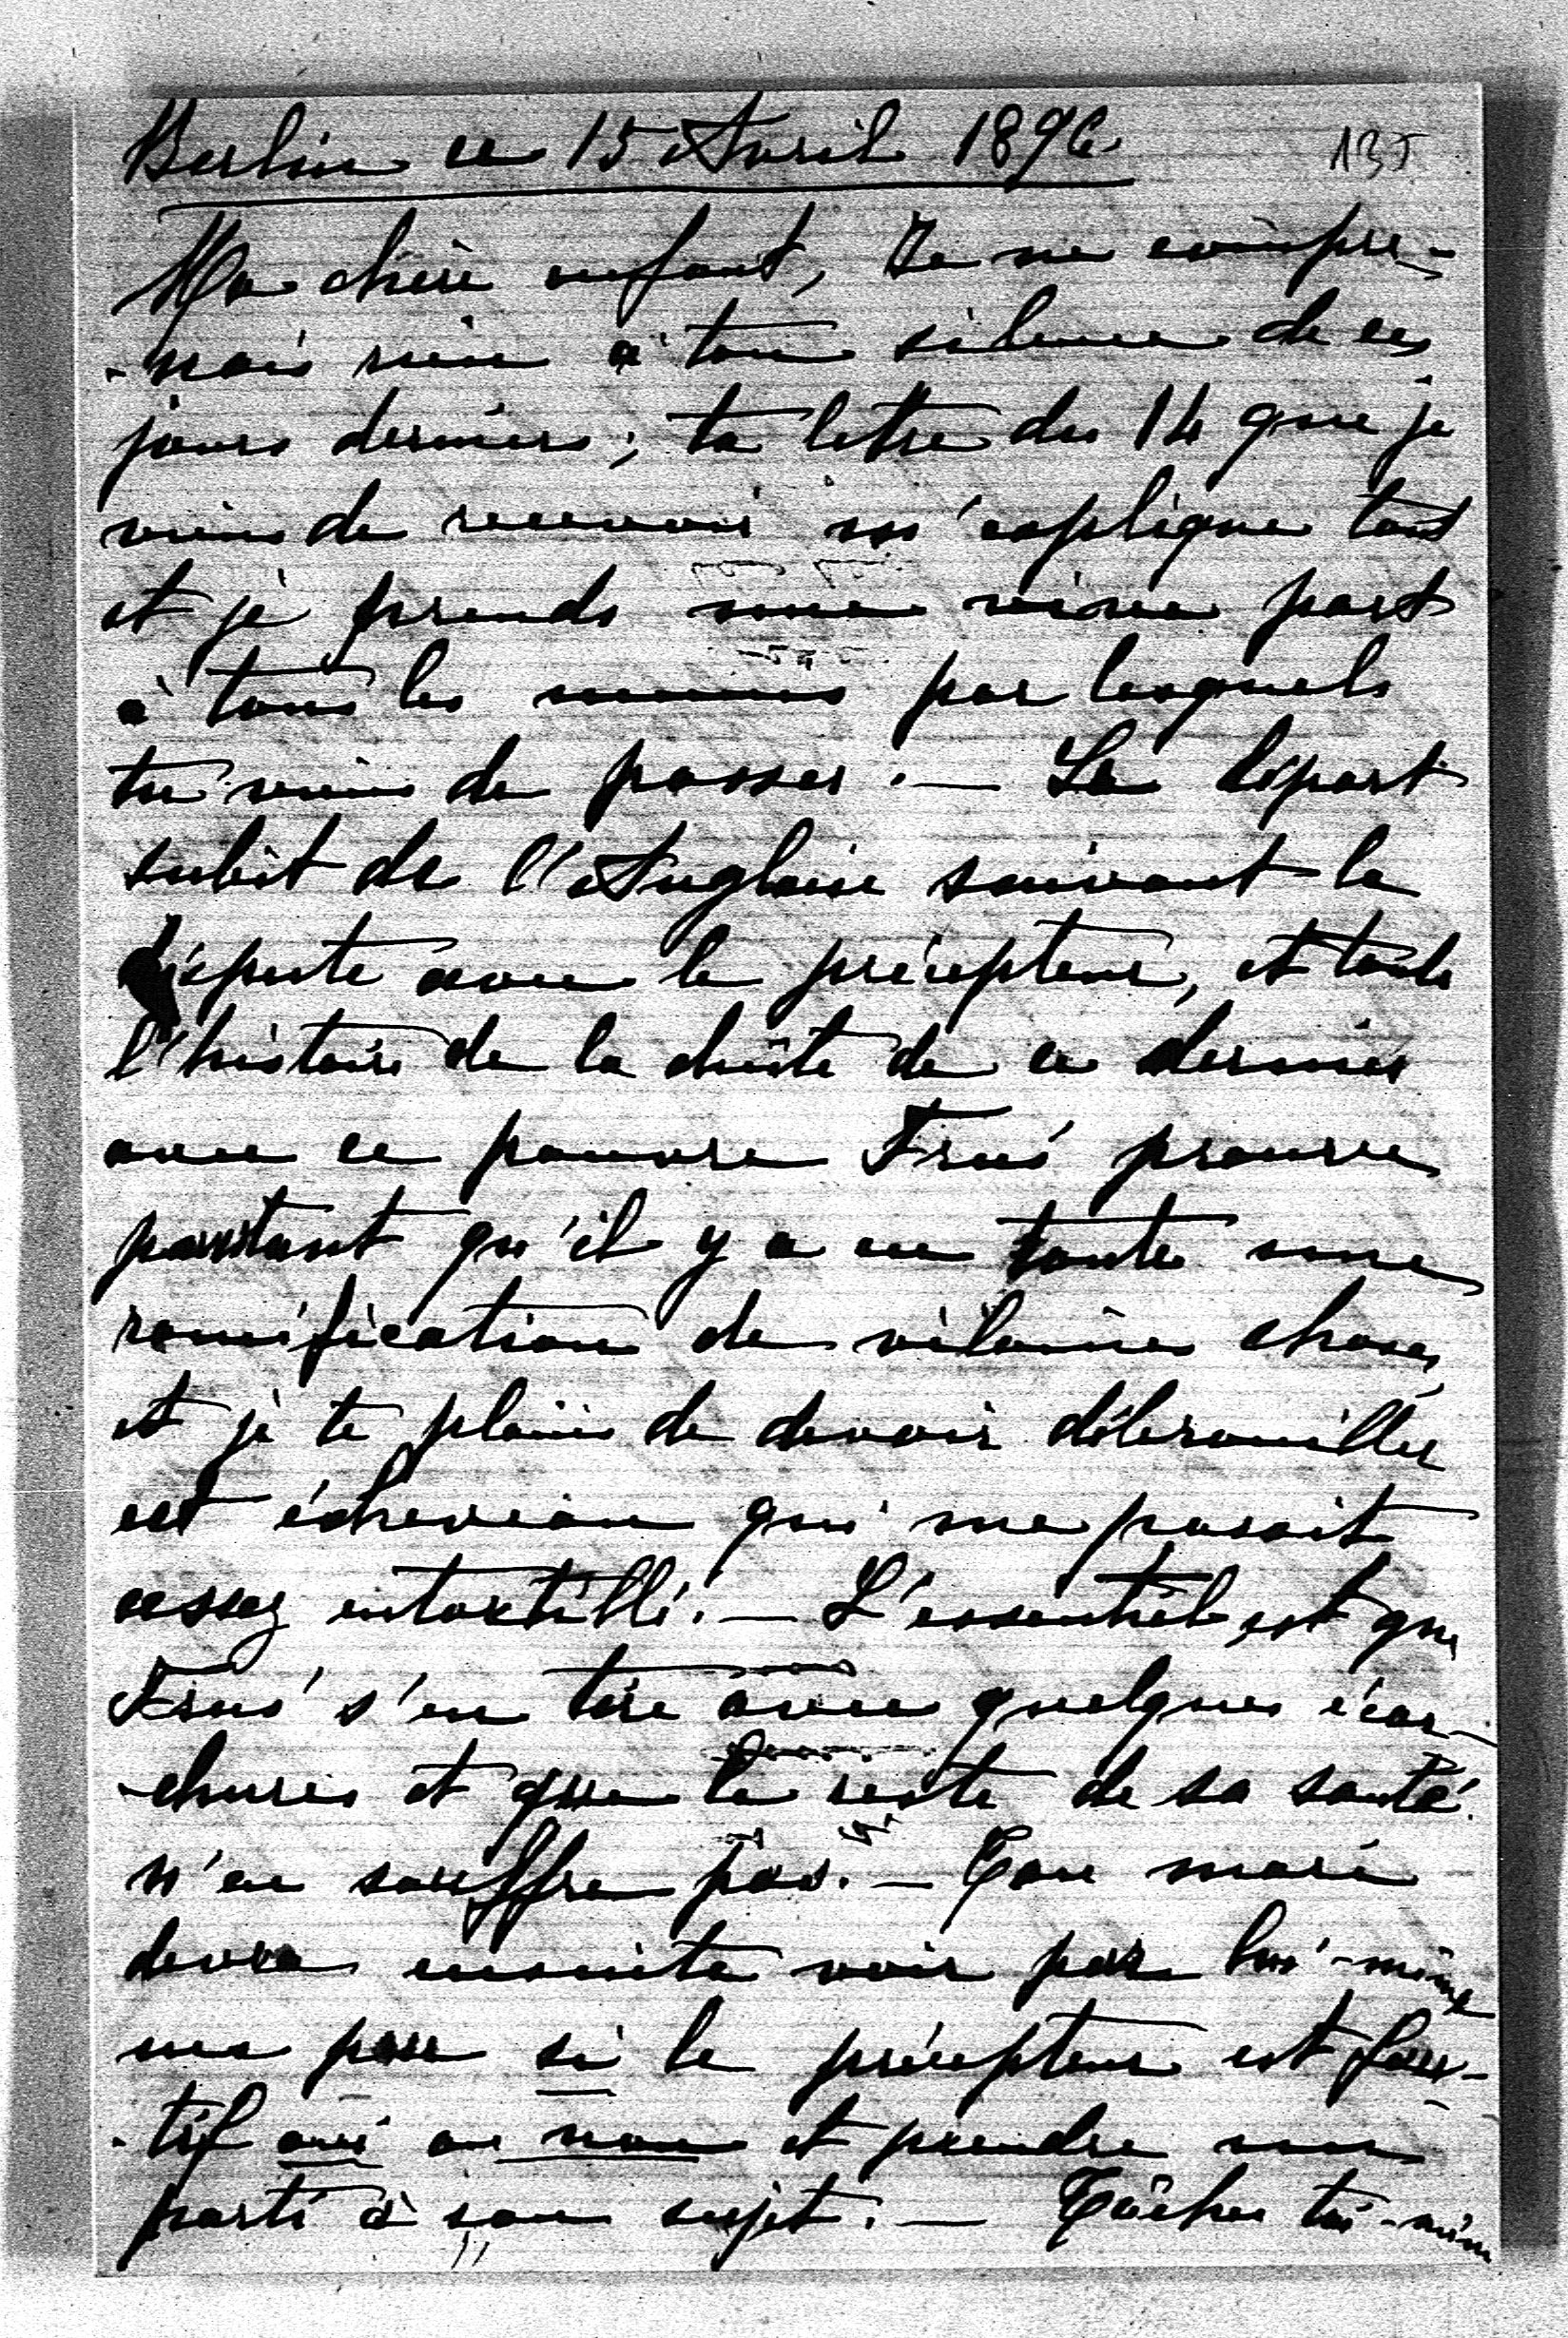 Berlin ce 15 Avril 1896 135
Ma chère enfant, Je ne compre-
-nais rien à ton silence de ces
jours derniers; ta lettre du 14 que je
viens de recevoir m'explique tout
et je prends une vive part
à tous les ennuis par lesquels
tu viens de passer. — Le départ
subit de l'Anglaise suivant la
dispute avec le précepteur, et toute
l'histoire de la chûte de ce dernier
avec ce pauvre prouve
pourtant qu'il y a eu toute une
ramification de vilaines choses,
et je te plains de devoir débrouiller
cet écheveau qui me parait
assez entortillé. — L'essentiel est que
s'en tire avec quelques écor-
-chures et que le reste de sa santé
n'en souffre pas. — Ton mari
devra ensuite voir par lui-même
si le précepteur est fau-
-tif oui ou non et prendre son
parti à son sujet. — Tâches toi-même